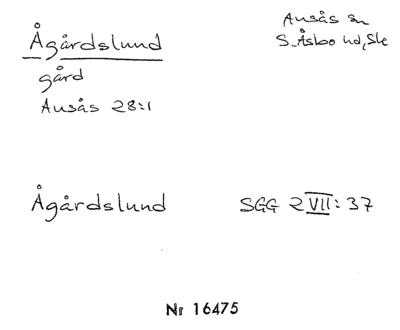 Ågårdslund
Ausås sn
S. Åsbo hd, Sk
gård
Ausås 28:1
Ågårdslund
SGG 2 VII: 37
Nr 16475